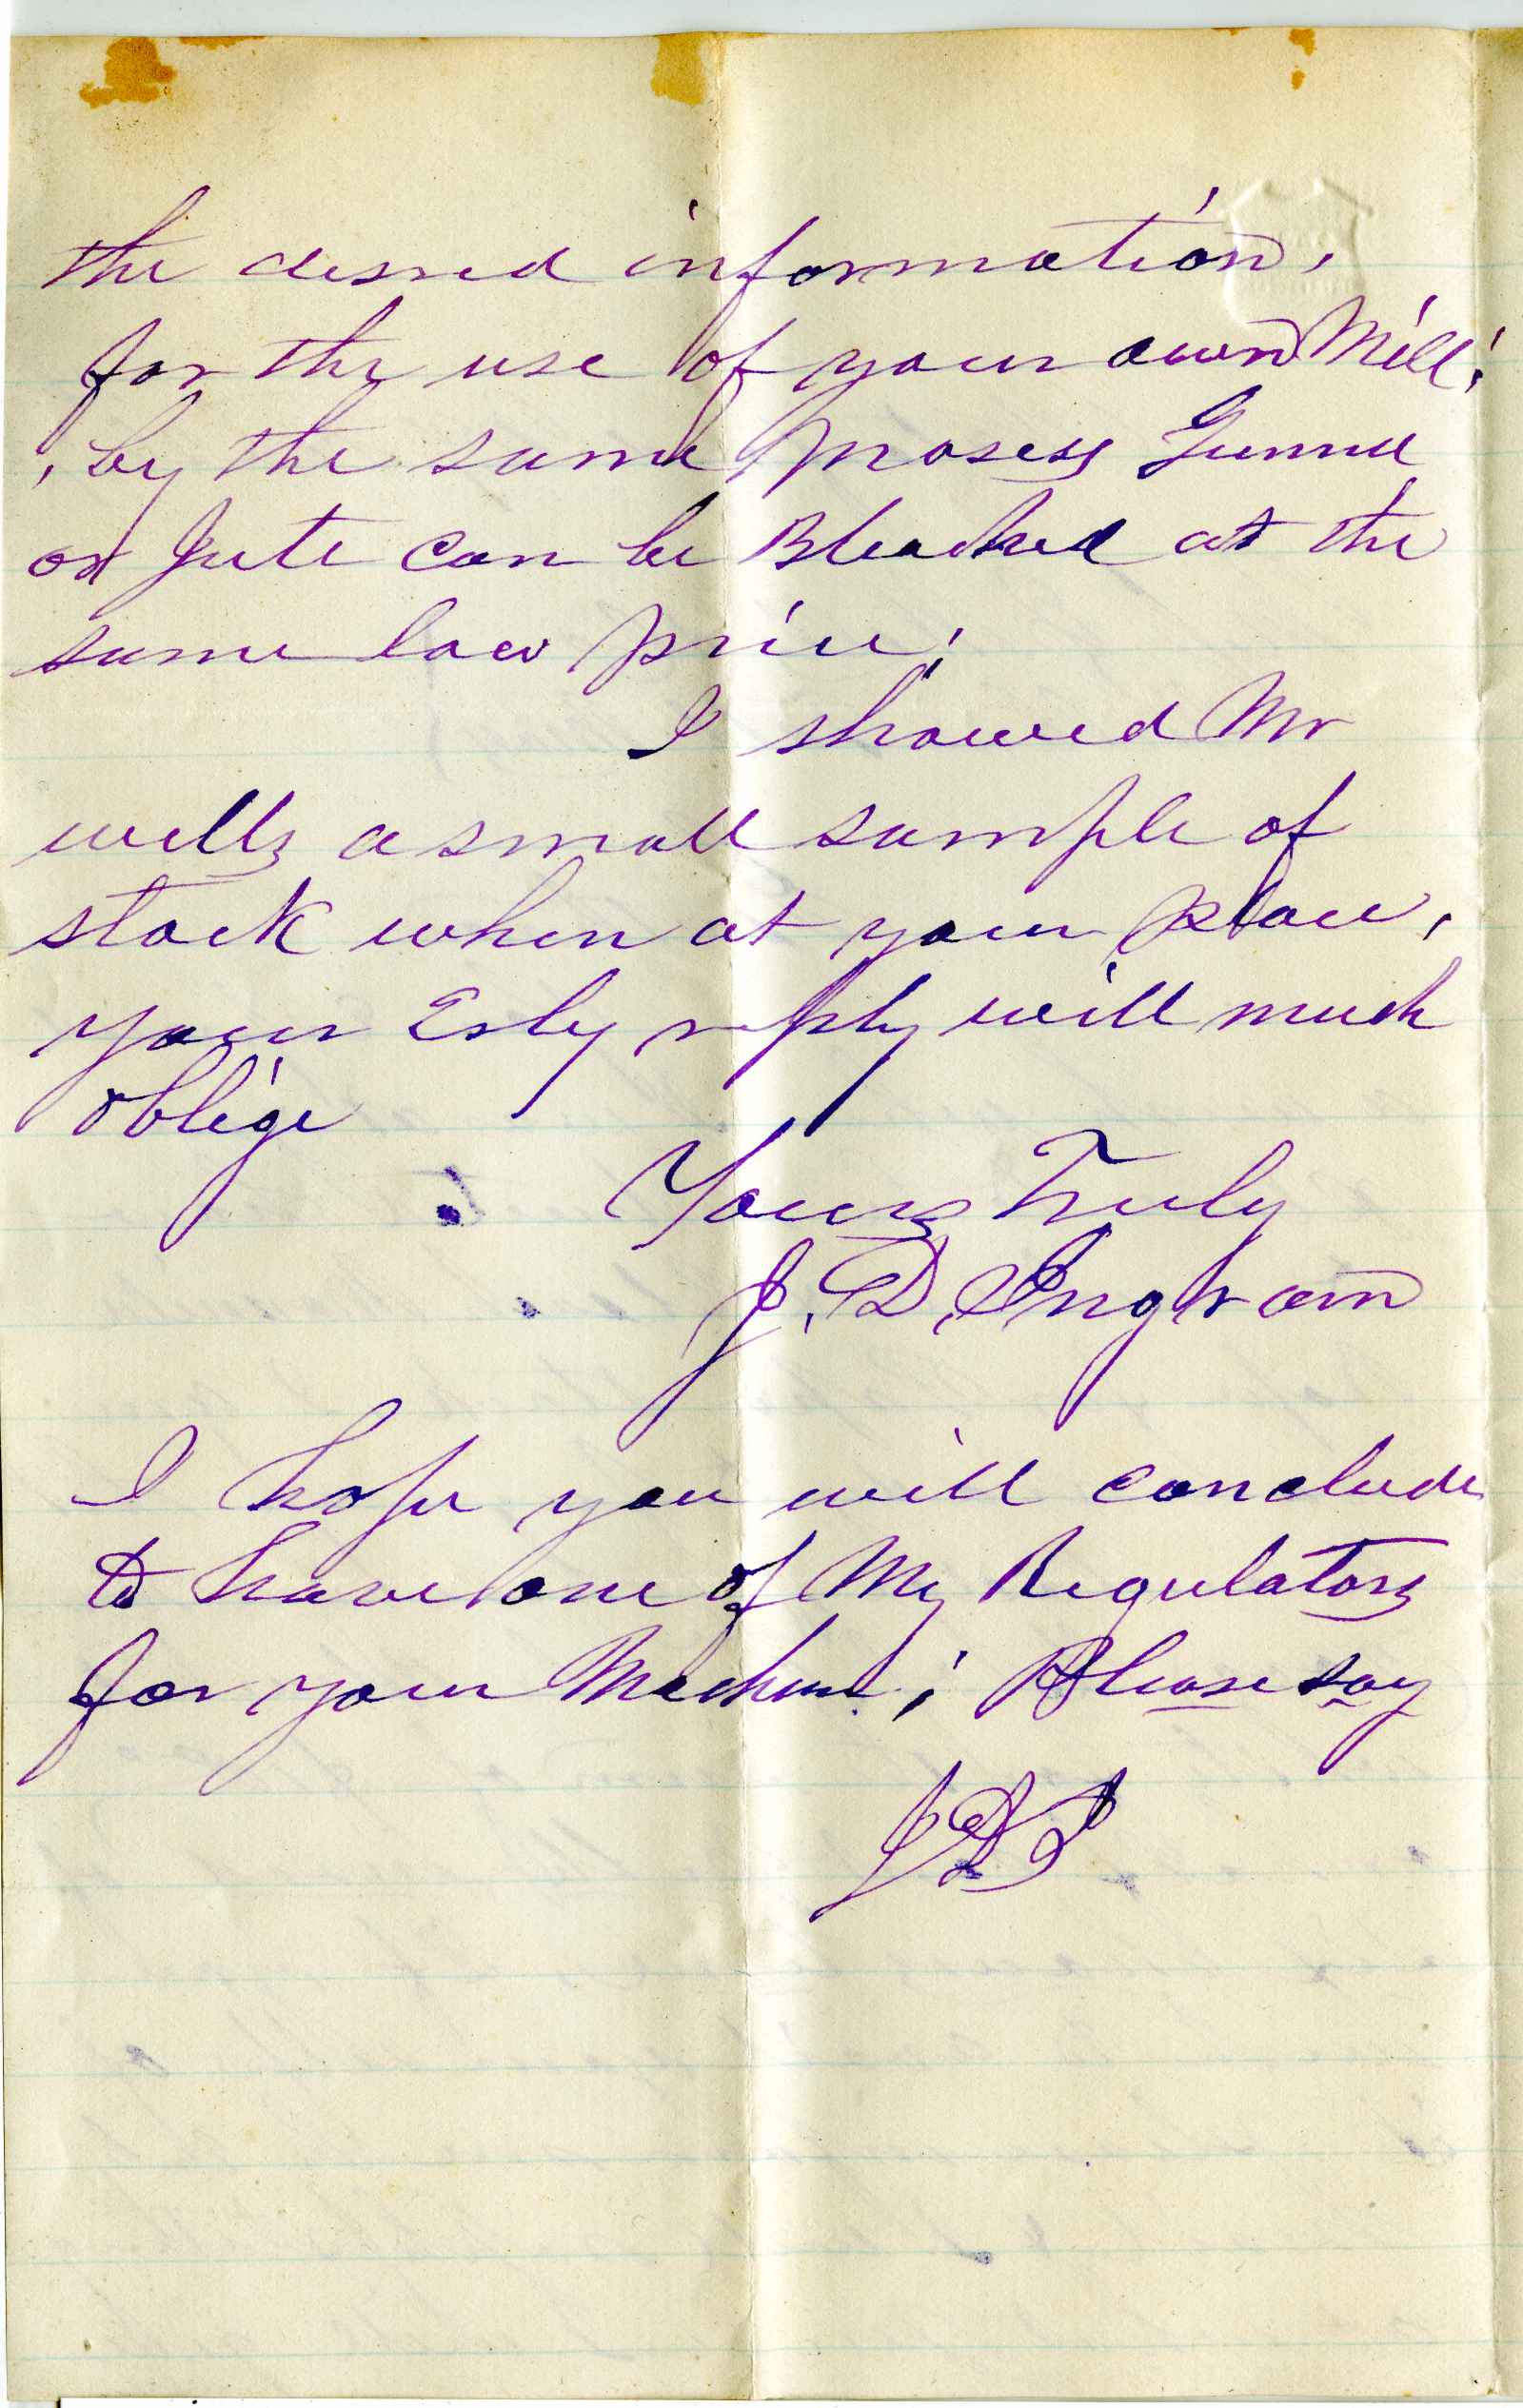 the desired information,
for the use of your own Mill;
, by the same prosess Gunne
or Jute can be Bleached at the
same low price;
I showed Mr
wells a small sample of
stock when at your place,
your Erly reply will much
oblige
Yours Truly
J. D. Ingram
I hope you will conclude
to have one of My Regulators
for your Machine; Please say
JDI